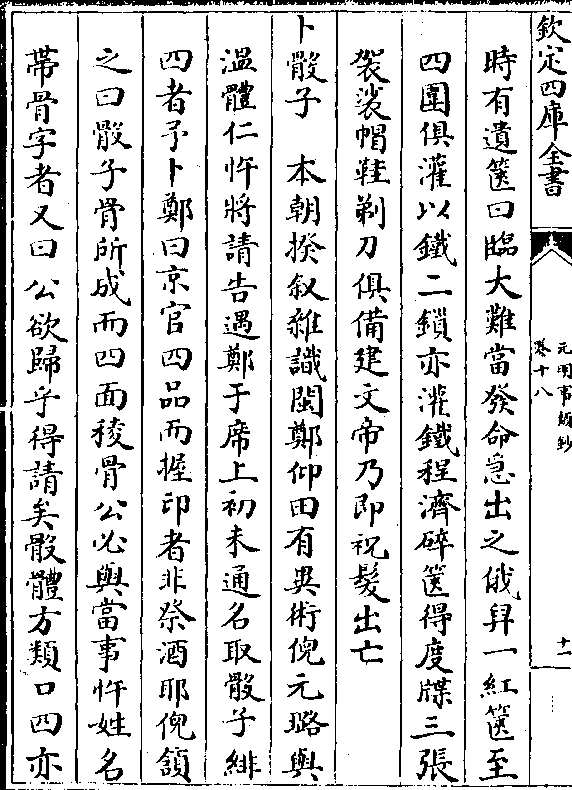 欽定四庫全書
元明事類鈔
卷十八
十一
時有遺篋曰臨大難當發命急出之俄舁一紅篋至
四圍俱灌以鐵二鎖亦灌鐵程濟碎篋得度牒三張
袈裟帽鞋剃刀俱備建文帝乃即祝髮出亡
卜骰子　本朝揆叙雜識閩鄭仰田有異術倪元璐與
溫體仁忤將請告遇鄭于席上初未通名取骰子緋
四者予卜鄭曰京官四品而握印者非祭酒耶倪頷
之曰骰子骨所成而四面稜骨公必與當事忤姓名
帶骨字者又曰公欲歸乎得請矣骰體方類口四亦